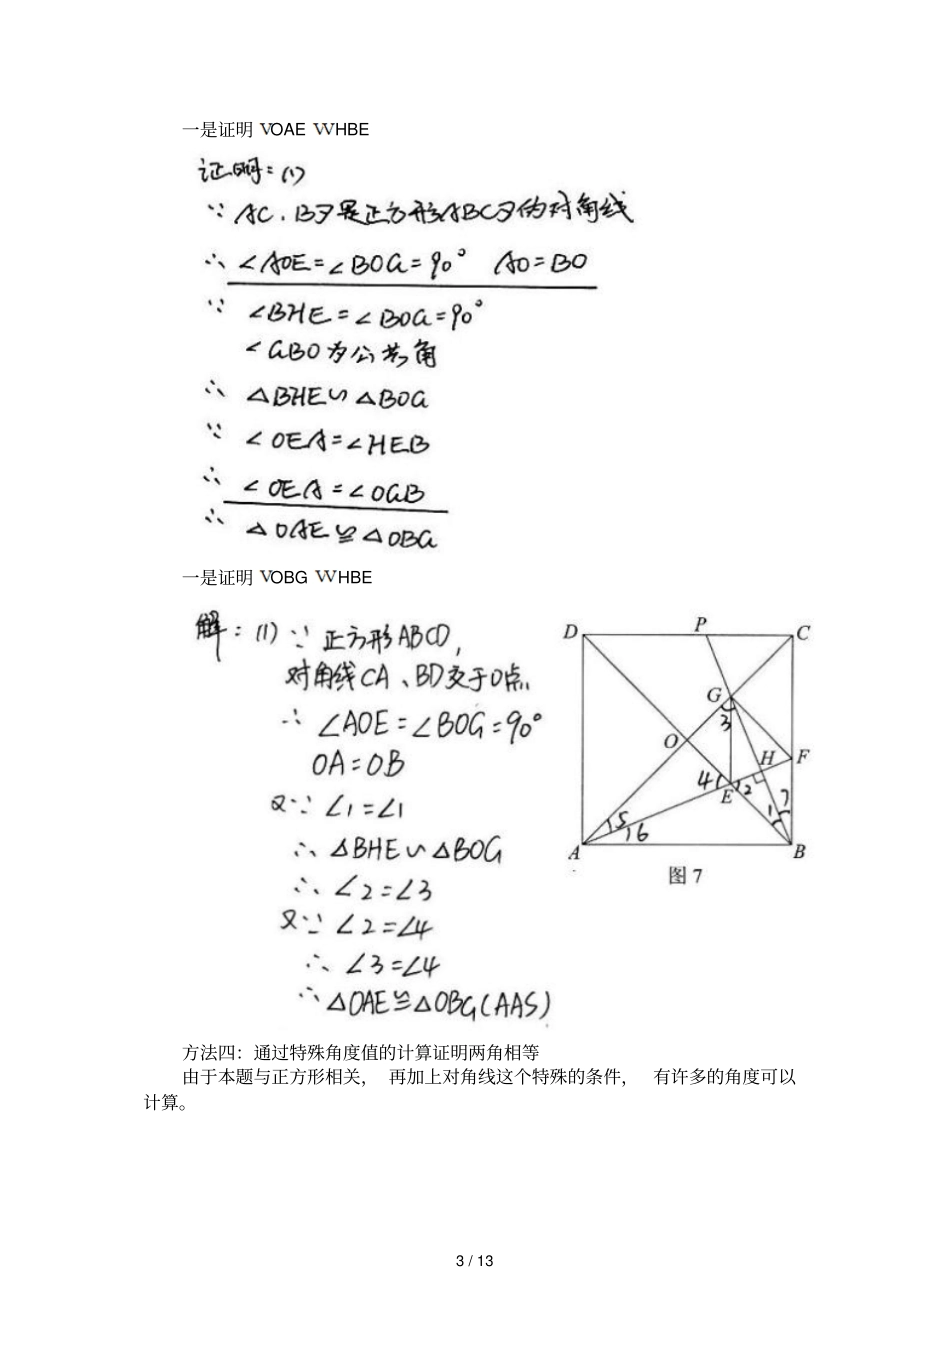 一是证明 VOAE VVHBE
证明:(1)
∵ AC、BD是正方形ABCD的对角线
∴ ∠AOE=∠BOG=90° AO=BO
∵ ∠BHE=∠BOG=90°
∠GBO为公共角
∴ △BHE∽△BOG
∵ ∠OEA=∠HEB
∴ ∠OEA=∠OGB
∴ △OAE≌△OBG
一是证明 VOBG VVHBE
解:(1)∵ 正方形ABCD,
对角线CA、BD交于O点
∴ ∠AOE=∠BOG=90°
OA=OB
又∵ ∠1=∠1
∴ △BHE∽△BOG
∴ ∠2=∠3
又∵ ∠2=∠4
∴ ∠3=∠4
∴ △OAE≌△OBG(AAS)
D P C
G
3
O H F
4 2
E 1 7
5
6
A B
图7
方法四：通过特殊角度值的计算证明两角相等
由于本题与正方形相关， 再加上对角线这个特殊的条件， 有许多的角度可以
计算。
3 / 13